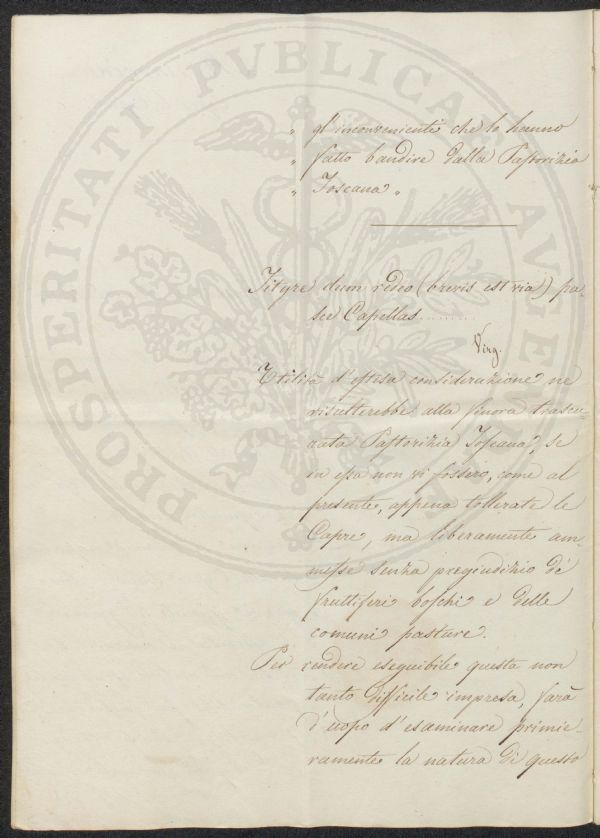 PROSPERITATI PVBLICAE AVGENDAE
„ gl'inconvenienti che lo hanno
„ fatto bandire dalla Pastorizia
„ Toscana „
Tityre dum redeo (brevis est via) pa-
sce Capellas.........
Virg.
Utilità d'estesa considerazione ne
risulterebbe alla finora trascu-
rata Pastorizia Toscana, se
in essa non vi fossero, come al
presente, appena tollerate le
Capre, ma liberamente am-
messe senza pregiudizio de'
fruttiferi boschi e delle
comuni pasture.
Per rendere eseguibile questa non
tanto difficile impresa, farà
d'uopo d'esaminare primie-
ramente la natura di questo